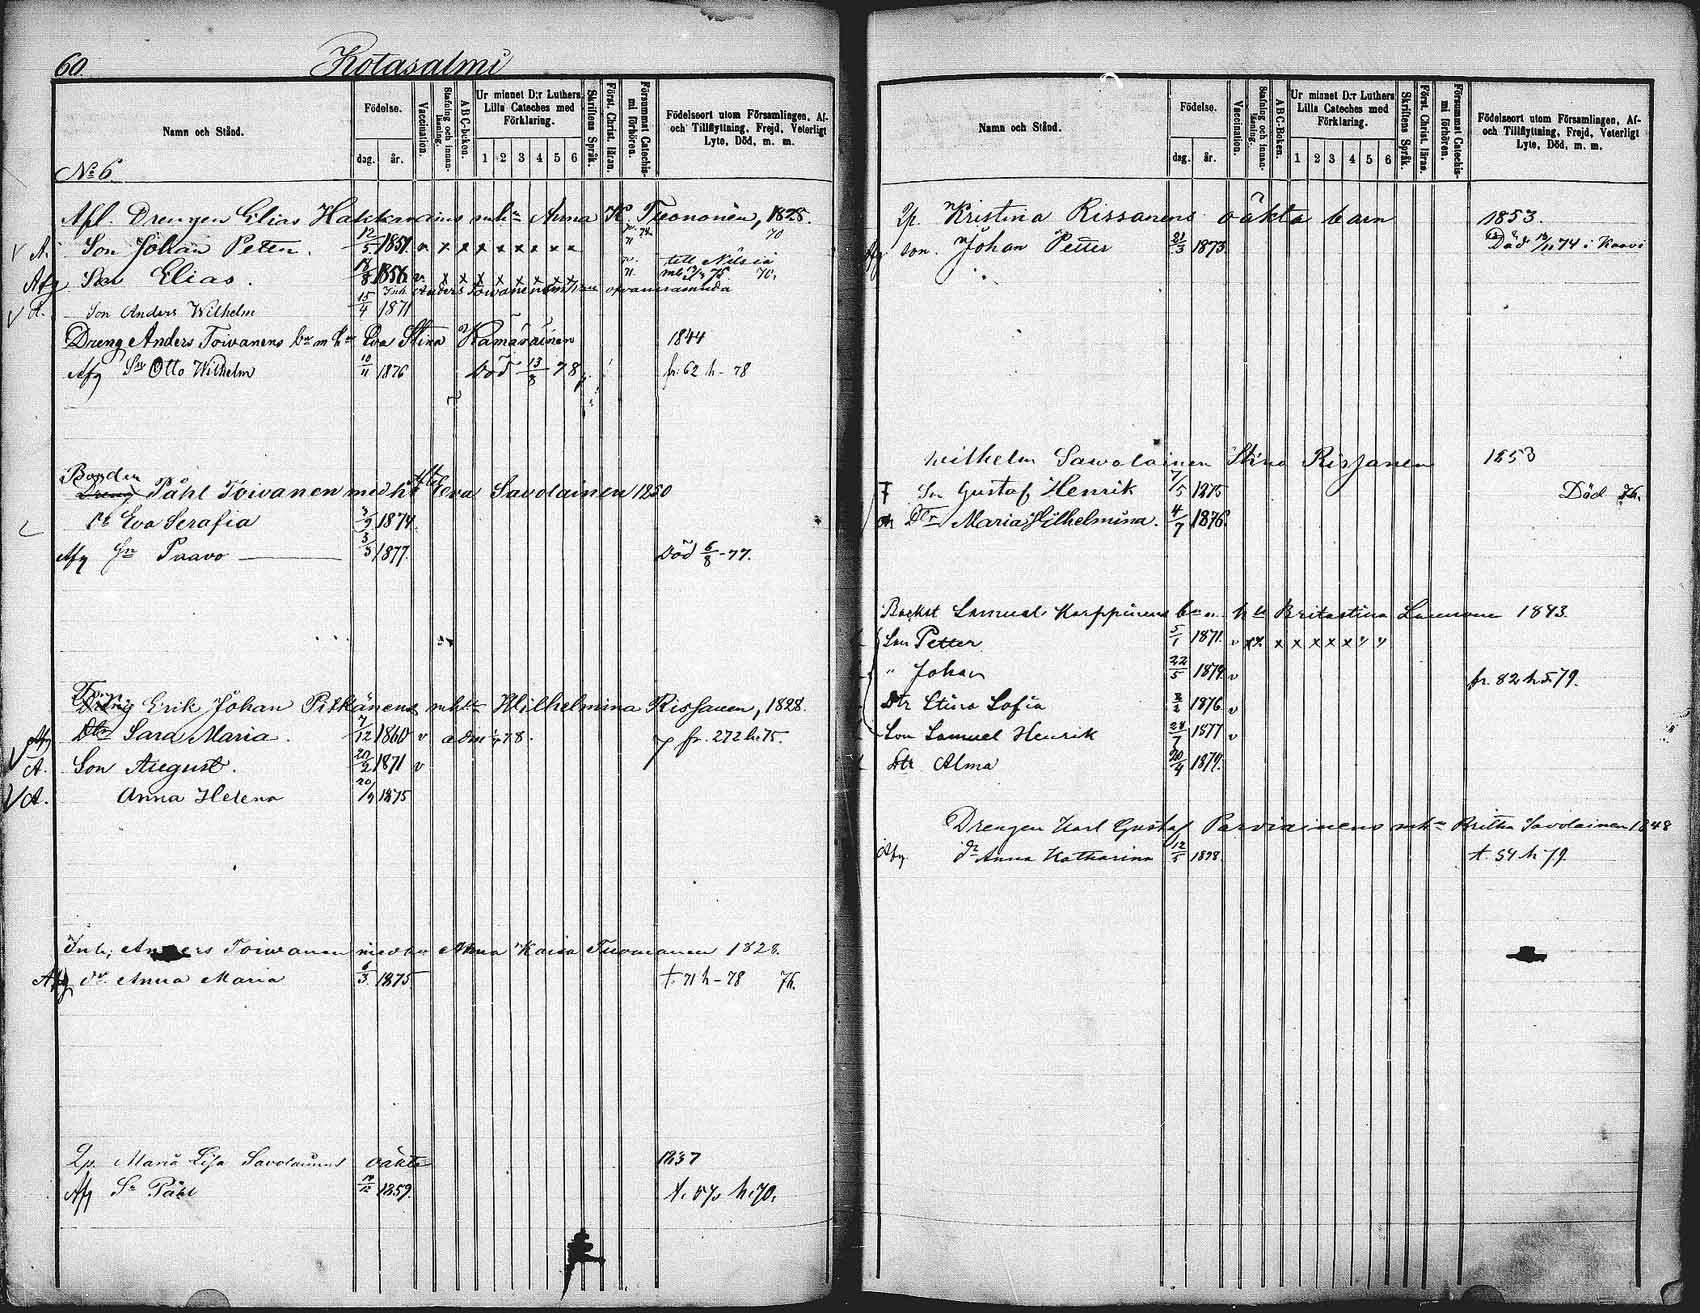 60. Kotasalmi
Namn och Stånd.
Födelse.
dag. år.
Vaccination.
Stafning och innanläsning.
ABC-boken.
Ur minnet D:r Luthers Lilla Cateches med Förklaring.
1 2 3 4 5 6
Skriftens Språk.
Först. Christ. läran.
Försummat Catechismi förhören.
Födelseort utom Församlingen, Af- och Tillflyttning, Frejd, Veterligt Lyte, Död, m. m.
№ 6
Afl. Drengen Elias Hakkarains mhu Anna K. Tuononen, 1828.
A. Son Johan Peter. 12/5 1851. v x x x x x x x x 70
Afg Son Elias. 1856 v. x x x x x x x till Nilsiä 75 70,
A. Son Anders Wilhelm 15/4 1871
Dreng Anders Toivanens bn m hu Eva Stina Hämäläinen 1844
Afg Sn Otto Wilhelm 10/11 1876 Död 13/8 78 fr. 62 h - 78
Bonden
Dreng Påhl Toivanen med hu Eva Savolainen 1850
Dr Eva Serafia 1874
Afg Sn Paavo 3/3 1877. Död 6/8 -77.
Dreng Erik Johan Pitkänens mhu Wilhelmina Rissanen, 1828.
Afg Dtr Sara Maria. 7/12 1860 v adm 78. fr. 272 h. 75.
A. Son August. 20/2 1871 v
A. Anna Helena 1875
Inh; Anders Toiwanen med hu Anna Kaisa Tuomanen 1828.
Afg dr Anna Maria 6/3 1875 t. 71 h - 78 76.
Qp. Maria Lisa Savolainens oäkta 1837
Afg Sn Påhl 1859. h. 70.
Namn och Stånd.
Födelse.
dag. år.
Vaccination.
Stafning och innanläsning.
ABC-Boken.
Ur minnet D:r Luthers Lilla Cateches med Förklaring.
1 2 3 4 5 6
Skriftens Språk.
Först. Christ. läran.
Försummat Catechismi förhören.
Födelseort utom Församlingen, Af- och Tillflyttning, Frejd, Veterligt Lyte, Död, m. m.
Qp. Kristina Rissanens oäkta barn 1853.
Afg son. Johan Petter 21/3 1873 Död 74 i Kaavi
Wilhelm Sawolainen Stina Rissanen 1853
Sn Gustaf Henrik 7/5 1875 Död 76.
Dtr Maria Wilhelmina. 4/7 1876.
Backst Samuel Karppinens bn m hu Brita Stina 1843.
Son Petter 5/1 1871. v x x x x x x x " "
" Johan 22/5 1874 v fr. 82 h 79.
Dtr Stina Sofia 1876 v
Son Samuel Henrik 1877 v
Dtr Alma 20/4 1879.
Drengen Karl Gustaf Parviainens mhu Britha Savolainen 1848
Afg. dr Anna Katharina 12/5 1878 t. 54 h 79.